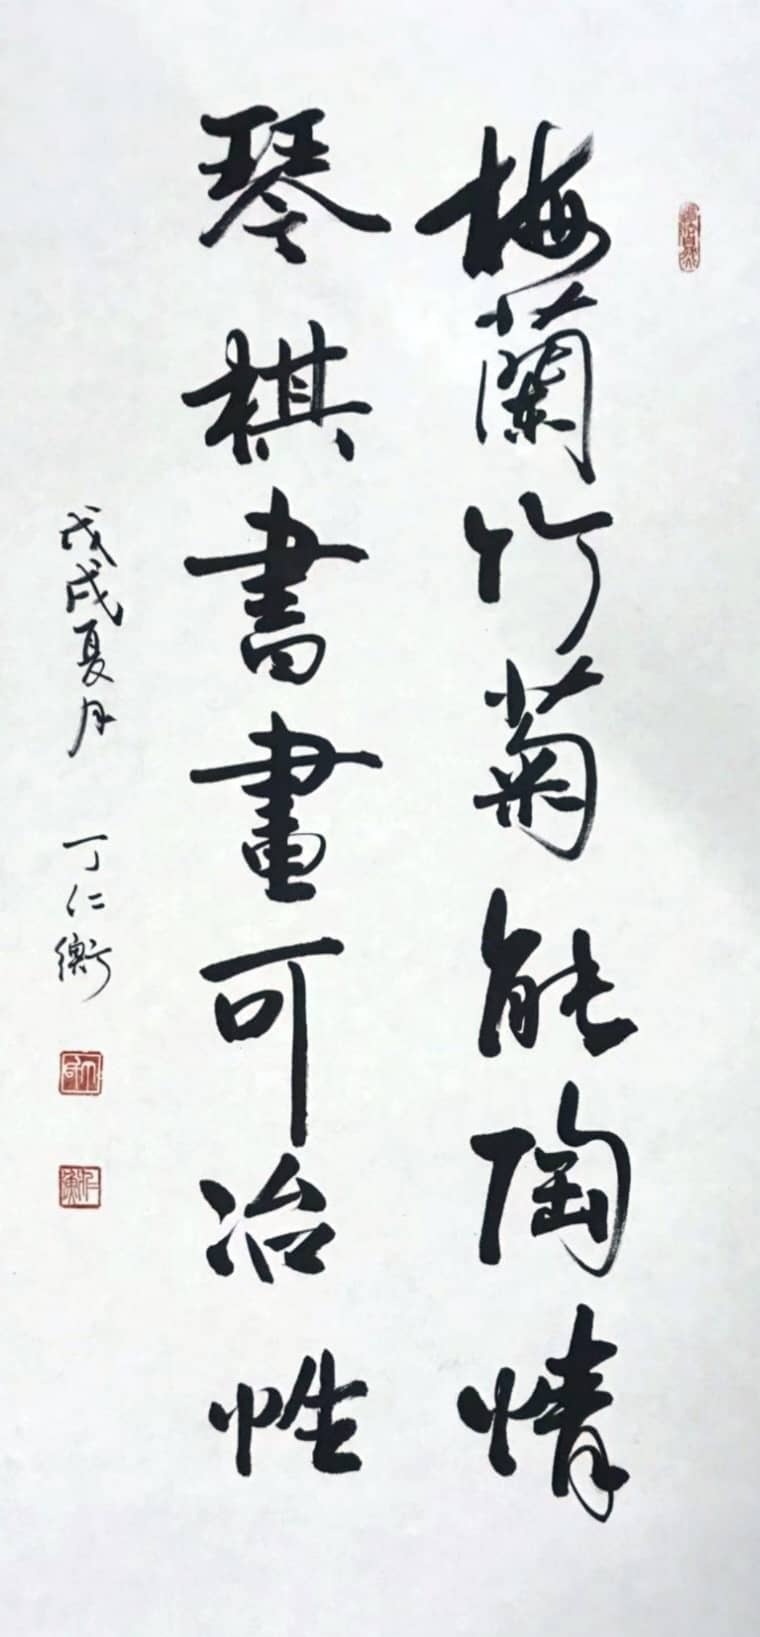 梅蘭竹菊能陶情
琴棋書畫可冶性
戊戌夏月 丁仁衡